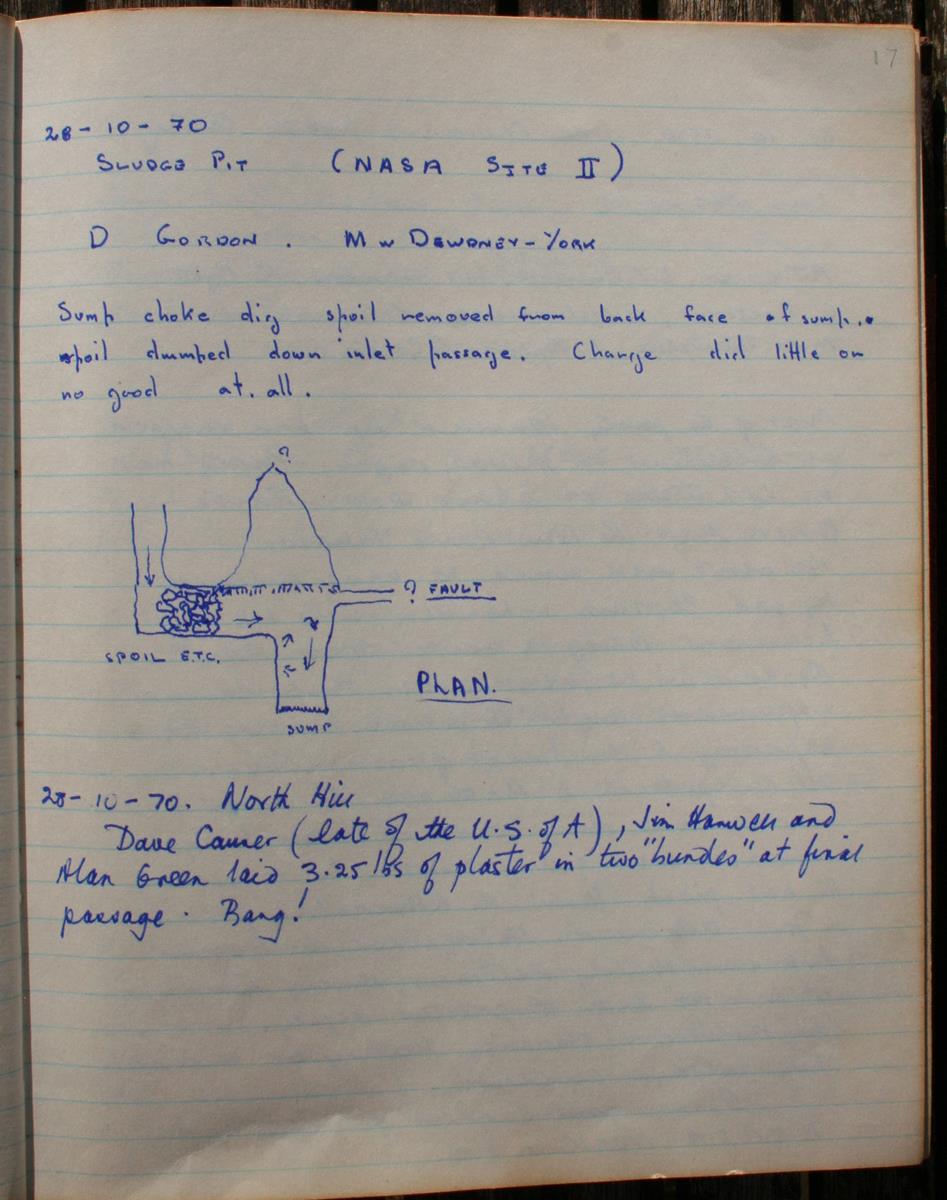 17
28-10-70
SLUDGE PIT (NASA SITE II)
D GORDON. M W DEWDNEY-YORK
Sump choke dig spoil removed from back face of sump.
spoil dumped down inlet passage. Charge did little or
no good at. all.
?
? FAULT
SPOIL E.T.C.
PLAN.
SUMP
28-10-70. North Hill
Dave Causer (late of the U.S. of A), Jim Hanwell and
Alan Green laid 3.25 lbs of plaster in two "bundes" at final
passage. Bang!